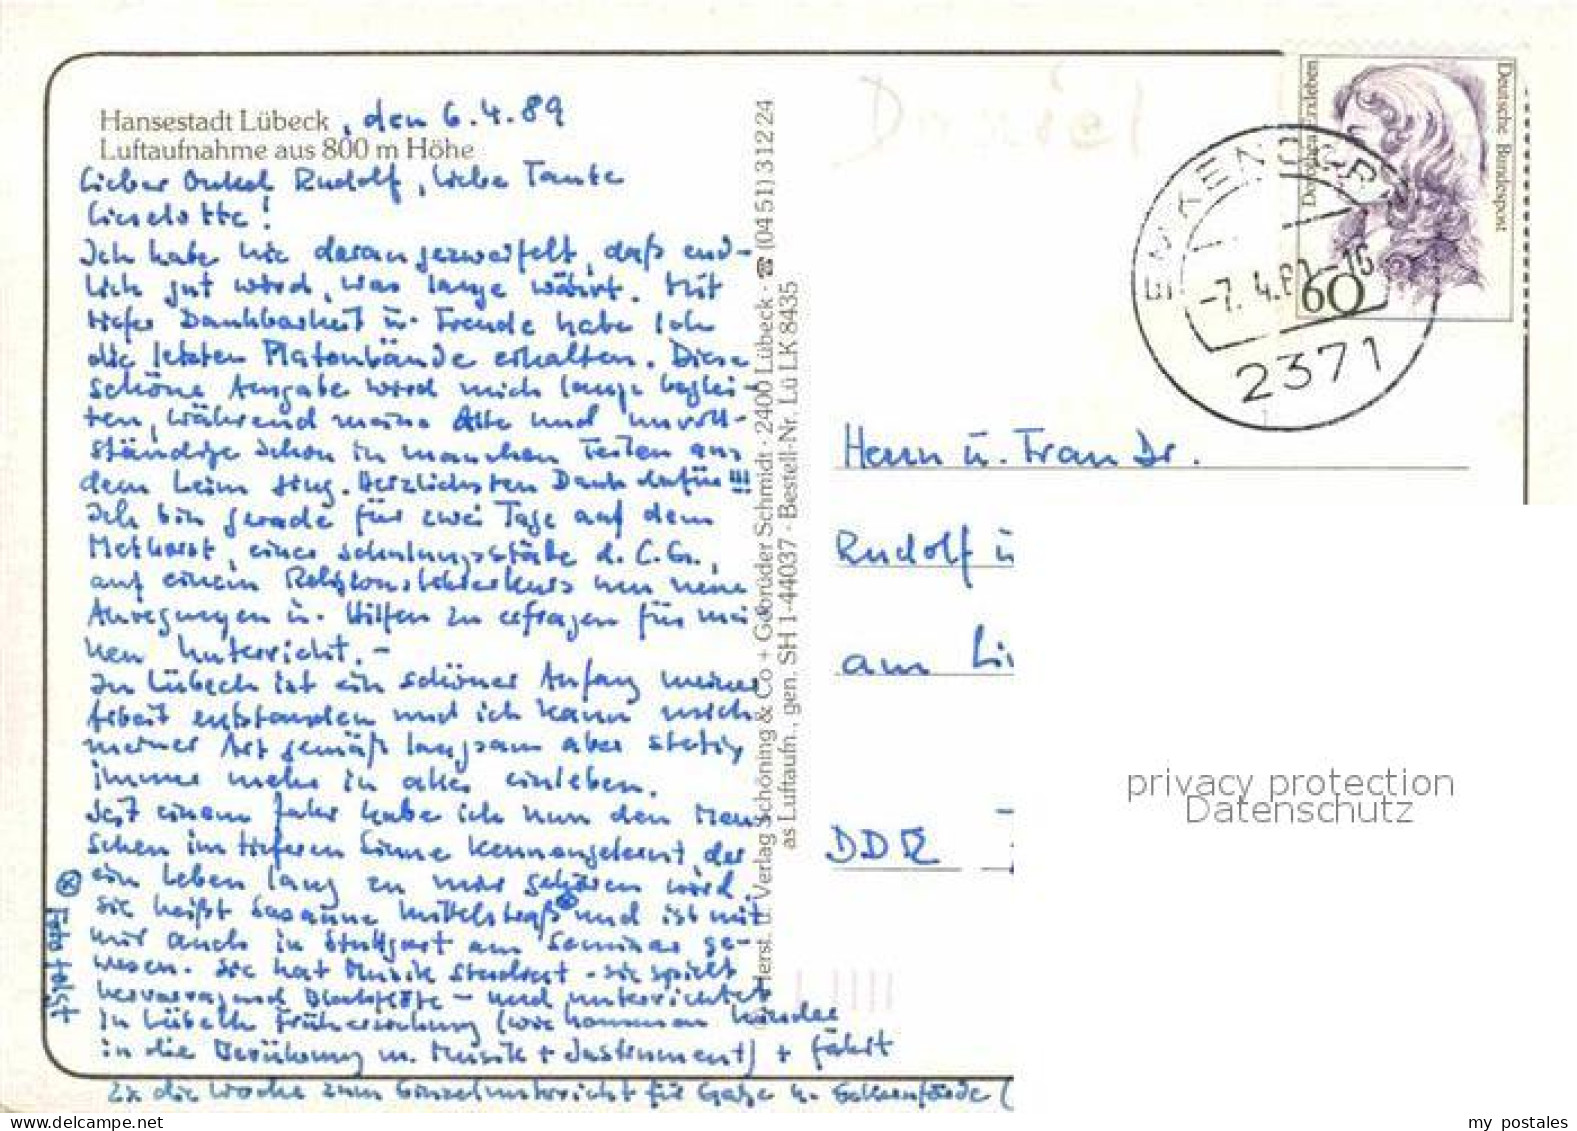 Hansestadt Lübeck, den 6.4.89
Luftaufnahme aus 800 m Höhe
Lieber Onkel Rudolf, liebe Tante
Lieselotte!
Ich habe nie daran gezweifelt, daß end-
lich gut wird, was lange währt. Mit
tiefer Dankbarkeit u. Freude habe ich
die letzten Platonbände erhalten. Diese
schöne Ausgabe wird mich lange beglei-
ten, während meine alte und unvoll-
ständige schon in manchen Teilen aus
dem Leim ging. Herzlichsten Dank dafür!!!
Ich bin gerade für zwei Tage auf dem
Methorst, einer Schulungsstätte d. C.G.,
auf einem Religionslehrerkurs um neue
Anregungen u. Hilfen zu erfragen für mei
nen Unterricht. -
In Lübeck ist ein schöner Anfang meiner
Arbeit entstanden und ich kann mich
meiner Art gemäß langsam aber stetig
immer mehr in alles einleben.
Seit einem Jahr habe ich nun den Men
schen im tieferen Sinne kennengelernt, der
ein Leben lang zu mir gehören wird.
Sie heißt Susanne Mittelstraß und ist mit
mir auch in Stuttgart am Seminar ge-
wesen. Sie hat Musik studiert - sie spielt
hervorragend Blockflöte - und unterrichtet
in Lübeck Früherziehung (wie kommen Kinder
in die Berührung m. Musik + Instrument) + fährt
2x die Woche zum Einzelunterricht für Geige n. Eckernförde (
Foto folgt
Herst. u. Verlag Schöning & Co + Gebrüder Schmidt · 2400 Lübeck · ☎ (04 51) 3 12 24
as Luftaufn., gen. SH 1-44037 · Bestell-Nr. Lü LK 8435
Daniel
Dorothea Erxleben
Deutsche Bundespost
60
-7.4.89-16
2371
Herrn u. Frau Dr.
Rudolf u
am Li
DDR
privacy protection
Datenschutz
my postales